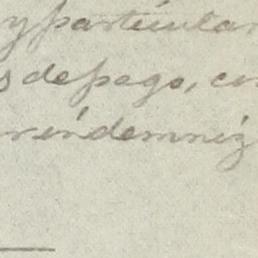 y particular
s de pago, con
r indemniz